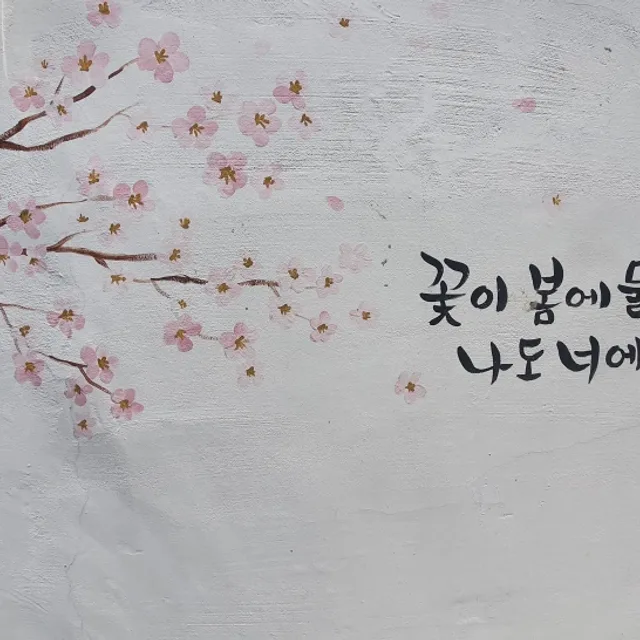 꽃이 봄에
나도 너에